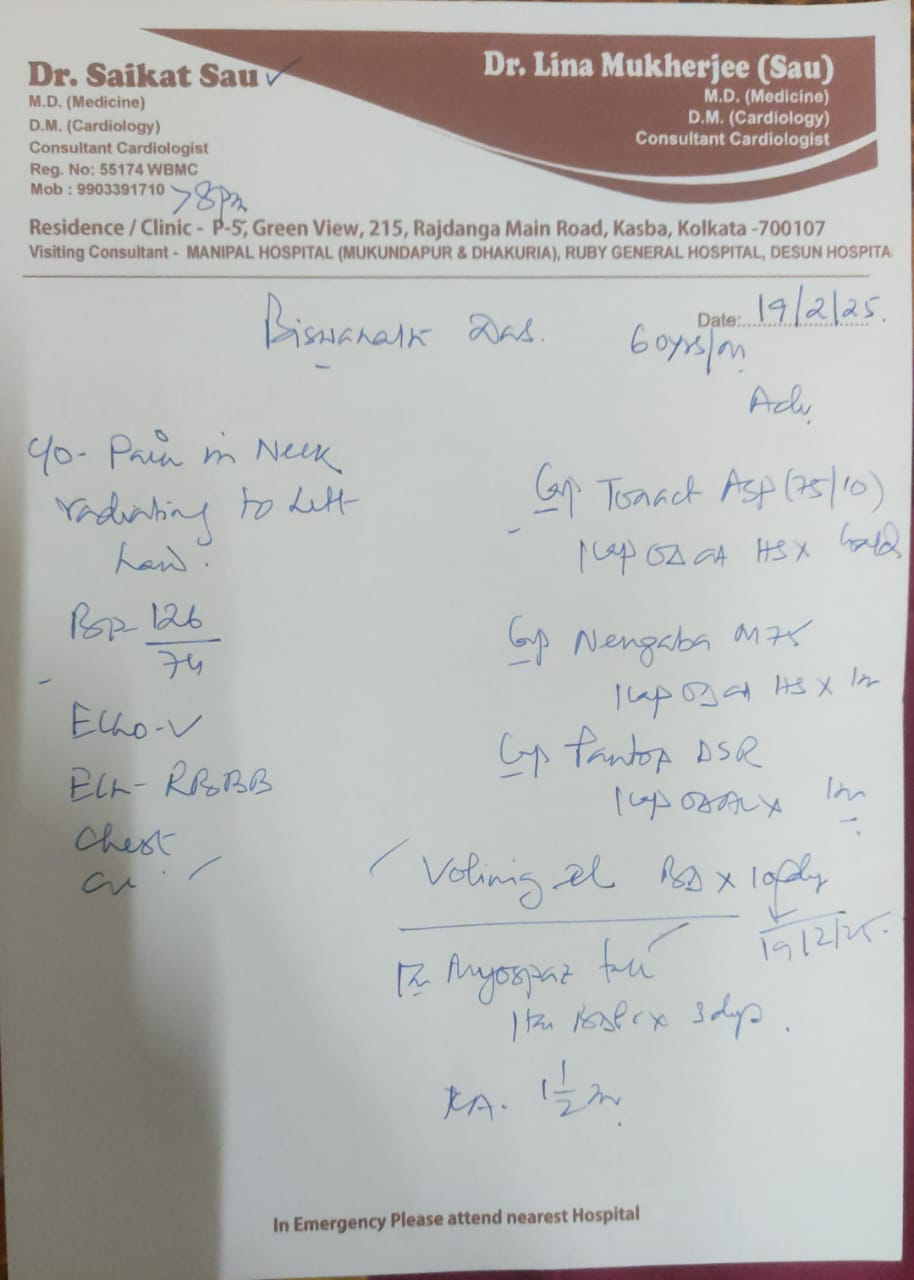 Dr. Saikat Sau ✓
M.D. (Medicine)
D.M. (Cardiology)
Consultant Cardiologist
Reg. No: 55174 WBMC
Mob : 9903391710 >8pm
Dr. Lina Mukherjee (Sau)
M.D. (Medicine)
D.M. (Cardiology)
Consultant Cardiologist
Residence / Clinic - P-5, Green View, 215, Rajdanga Main Road, Kasba, Kolkata -700107
Visiting Consultant - MANIPAL HOSPITAL (MUKUNDAPUR & DHAKURIA), RUBY GENERAL HOSPITAL, DESUN HOSPITA
Date: 19/2/25.
Biswanath Das. 60yrs/m
Adv.
c/o- Pain in Neck
radiating to Left
BP- 126/74
Echo-
ECG- RBBB
Chest
Cap Tonact Asp (75/10)
1cap OD at HS x
Cap Nengaba M75
1cap OD at HS x 1m
Cap Pantop DSR
1cap OD AC x 1m
Volinig gel BD x 10 day
19/2/25.
Myospaz
1tab BDPC x 3 days.
1 1/2 m.
In Emergency Please attend nearest Hospital